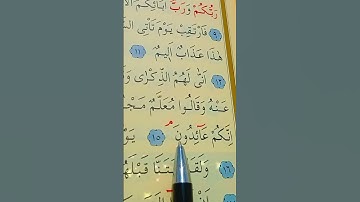 رَبُّكُمْ وَرَبُّ اٰبَٓائِكُمُ الْاَ
﴿٩﴾ فَارْتَقِبْ يَوْمَ تَأْتِى السَّ
هٰذَا عَذَابٌ اَلٖيمٌ ﴿١١﴾
﴿١٢﴾ اَنّٰى لَهُمُ الذِّكْرٰى وَقَ
عَنْهُ وَقَالُوا مُعَلَّمٌ مَجْ
اِنَّكُمْ عَٓائِدُونَ ﴿١٥﴾ يَوْ
﴿١٦﴾ وَلَقَ تَنَّا قَبْلَهُ